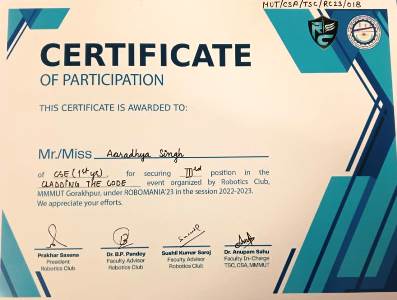 MUT/CSA/TSC/RC23/018
CERTIFICATE
OF PARTICIPATION
THIS CERTIFICATE IS AWARDED TO:
Mr./Miss Aaradhya Singh
of CSE (1st yr) for securing IIIrd position in the
CLADDING THE CODE event organized by Robotics Club,
MMMUT Gorakhpur, under ROBOMANIA'23 in the session 2022-2023.
We appreciate your efforts.
Prakhar Saxena
President
Robotics Club
Dr. B.P. Pandey
Faculty Advisor
Robotics Club
Sushil Kumar Saroj
Faculty Advisor
Robotics Club
Dr. Anupam Sahu
Faculty In-Charge
TSC, CSA, MMMUT